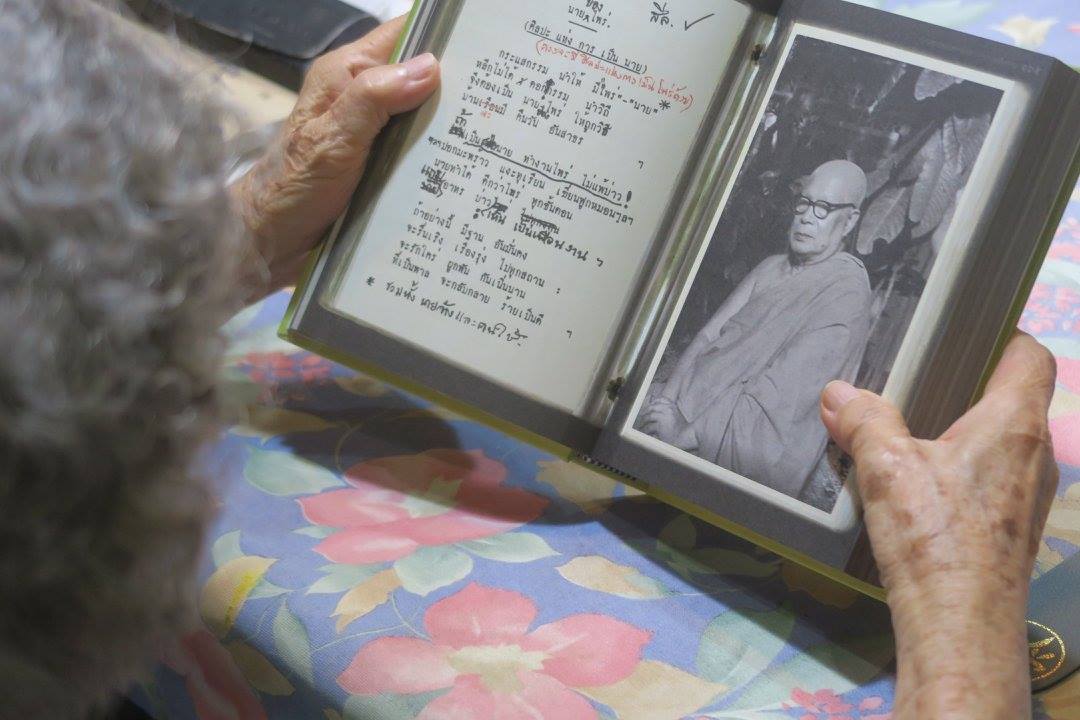 ของ
นาย ไพร่.
สล. ✓
(ศิลปะ แห่ง การ เป็น นาย)
กระแสกรรม นำให้ มีไพร่"-"นาย"*
หลีกไม่ได้ คอกกรรม นำวิถี
จึงต้องเป็น นาย ไพร่ ให้ถูกวิธี
บ้านเรือนมี คืนวัน อันสาธร ฯ
เป็น นาย ทำงานไพร่ ไม่แพ้บ่าว !
ปอกมะพร้าว แงะทุเรียน เขียนฟูกหมอน
นายทำได้ ดีกว่าไพร่ ทุกขั้นตอน
บ่าว เห็น เป็นเพื่อนงาน ฯ
ถ้าอย่างนี้ มีฐาน อันมั่นคง
จะรื่นเริง เรื่องรุ่ง ไปทุกสถาน :
จะรักใคร่ ผูกพัน กันเป็นนาน
ที่เป็นพาล จะกลับกลาย ร้ายเป็นดี ฯ
* รวมทั้ง นายจ้าง และคนใช้.